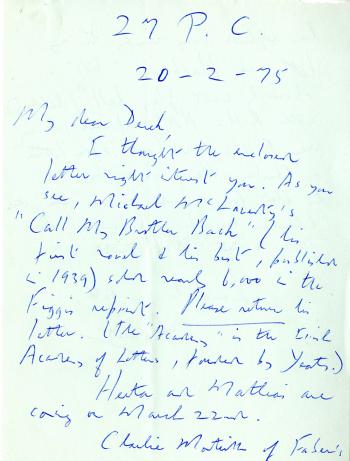 27 P. C.
20 - 2 - 75
My dear Derek,
I thought the enclosed
letter might interest you. As you
see, Michael McLaverty's
"Call My Brother Back" (his
first novel & his best, published
in 1939) sold nearly 6,000 in the
Figgis reprint. Please return his
letter. (The "Academy" is the Irish
Academy of Letters, founded by Yeats.)
Hector and Matthias are
coming on March 22nd.
Charlie Monteith of Faber's